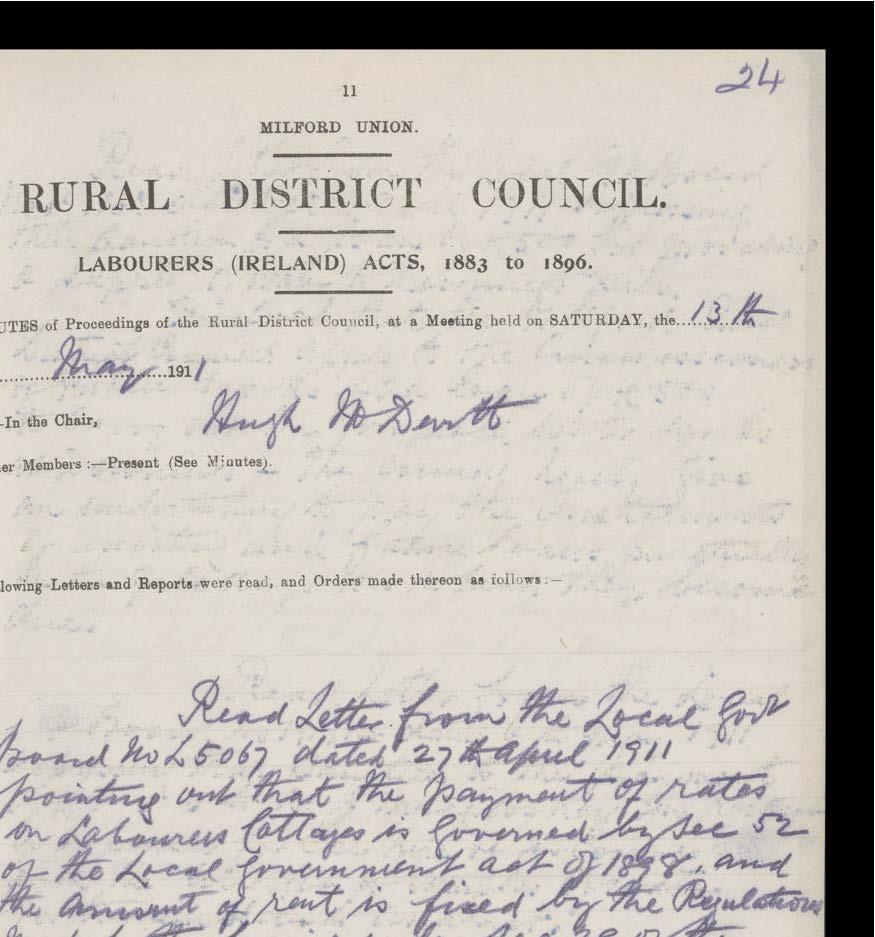 24
11
MILFORD UNION.
RURAL DISTRICT COUNCIL.
LABOURERS (IRELAND) ACTS, 1883 to 1896.
UTES of Proceedings of the Rural District Council, at a Meeting held on SATURDAY, the 13th
May 1911
-In the Chair, Hugh McDevitt
er Members :—Present (See Minutes).
lowing Letters and Reports were read, and Orders made thereon as follows :—
Read Letter from the Local Govt
Board No L 5067 dated 27th April 1911
pointing out that the payment of rates
on Labourers Cottages is Governed by Sec 52
of the Local Government act of 1898, and
the amount of rent is fixed by the Regulations